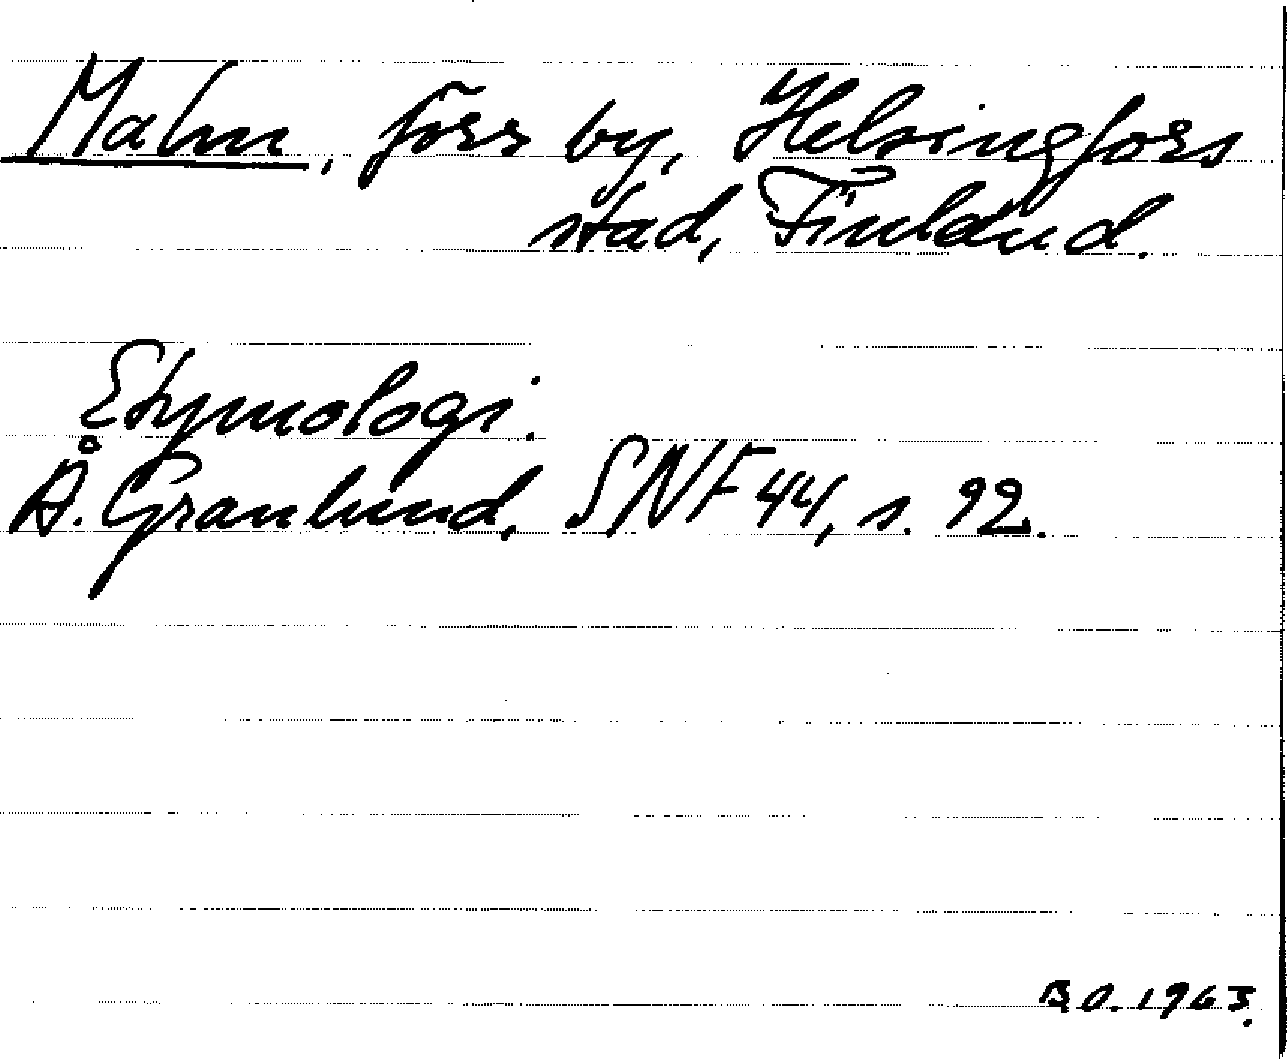 Malm, förr by, Helsingfors
stad, Finland.
Etymologi.
Å. Granlund, SNF 44, s. 92.
B O. 1963.